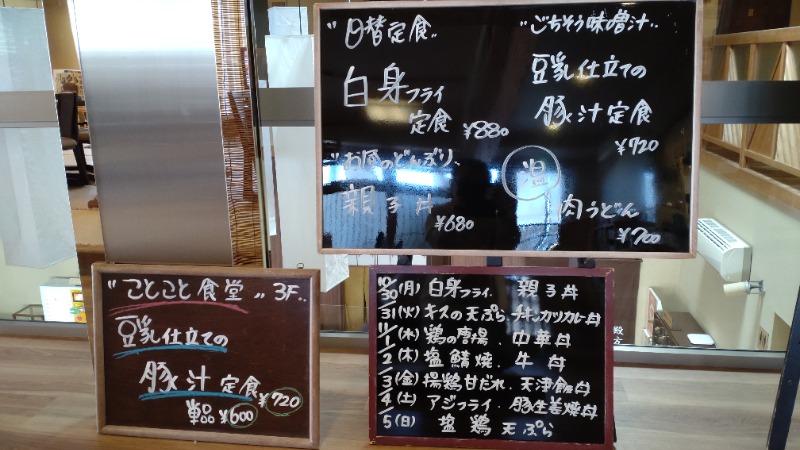 "日替定食"
白身フライ
定食 ¥880
"お昼のどんぶり"
親子丼
¥680
"ごちそう味噌汁"
豆乳仕立ての
豚汁定食
¥720
温
肉うどん
¥700
"ことこと食堂" 3F
豆乳仕立ての
豚汁定食
¥720
単品 ¥600
10/30(月) 白身フライ. 親子丼
31(火) キスの天ぷら チキンカツカレー丼
11/1(水) 鶏の唐揚. 中華丼
2(木) 塩鯖焼. 牛丼
3(金) 揚鶏甘だれ. 天津飯丼
4(土) アジフライ. 豚生姜焼丼
5(日) 塩鶏天ぷら